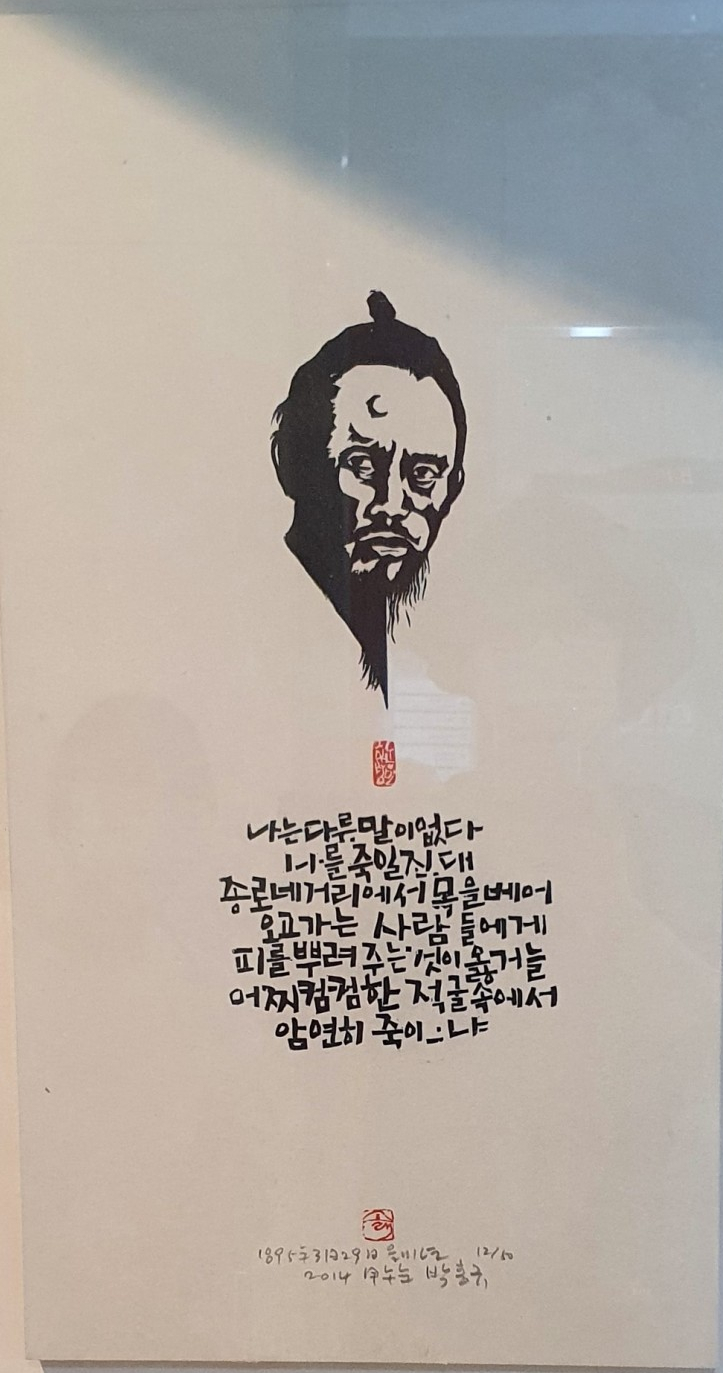 나는 다른 말이 없다
나를 죽일진대
종로 네거리에서 목을 베어
오고 가는 사람들에게
피를 뿌려 주는 것이 옳거늘
어찌 컴컴한 적굴 속에서
암연히 죽이느냐
1895年 3月 29日 을미년 12/50
2014 甲午年 박홍규